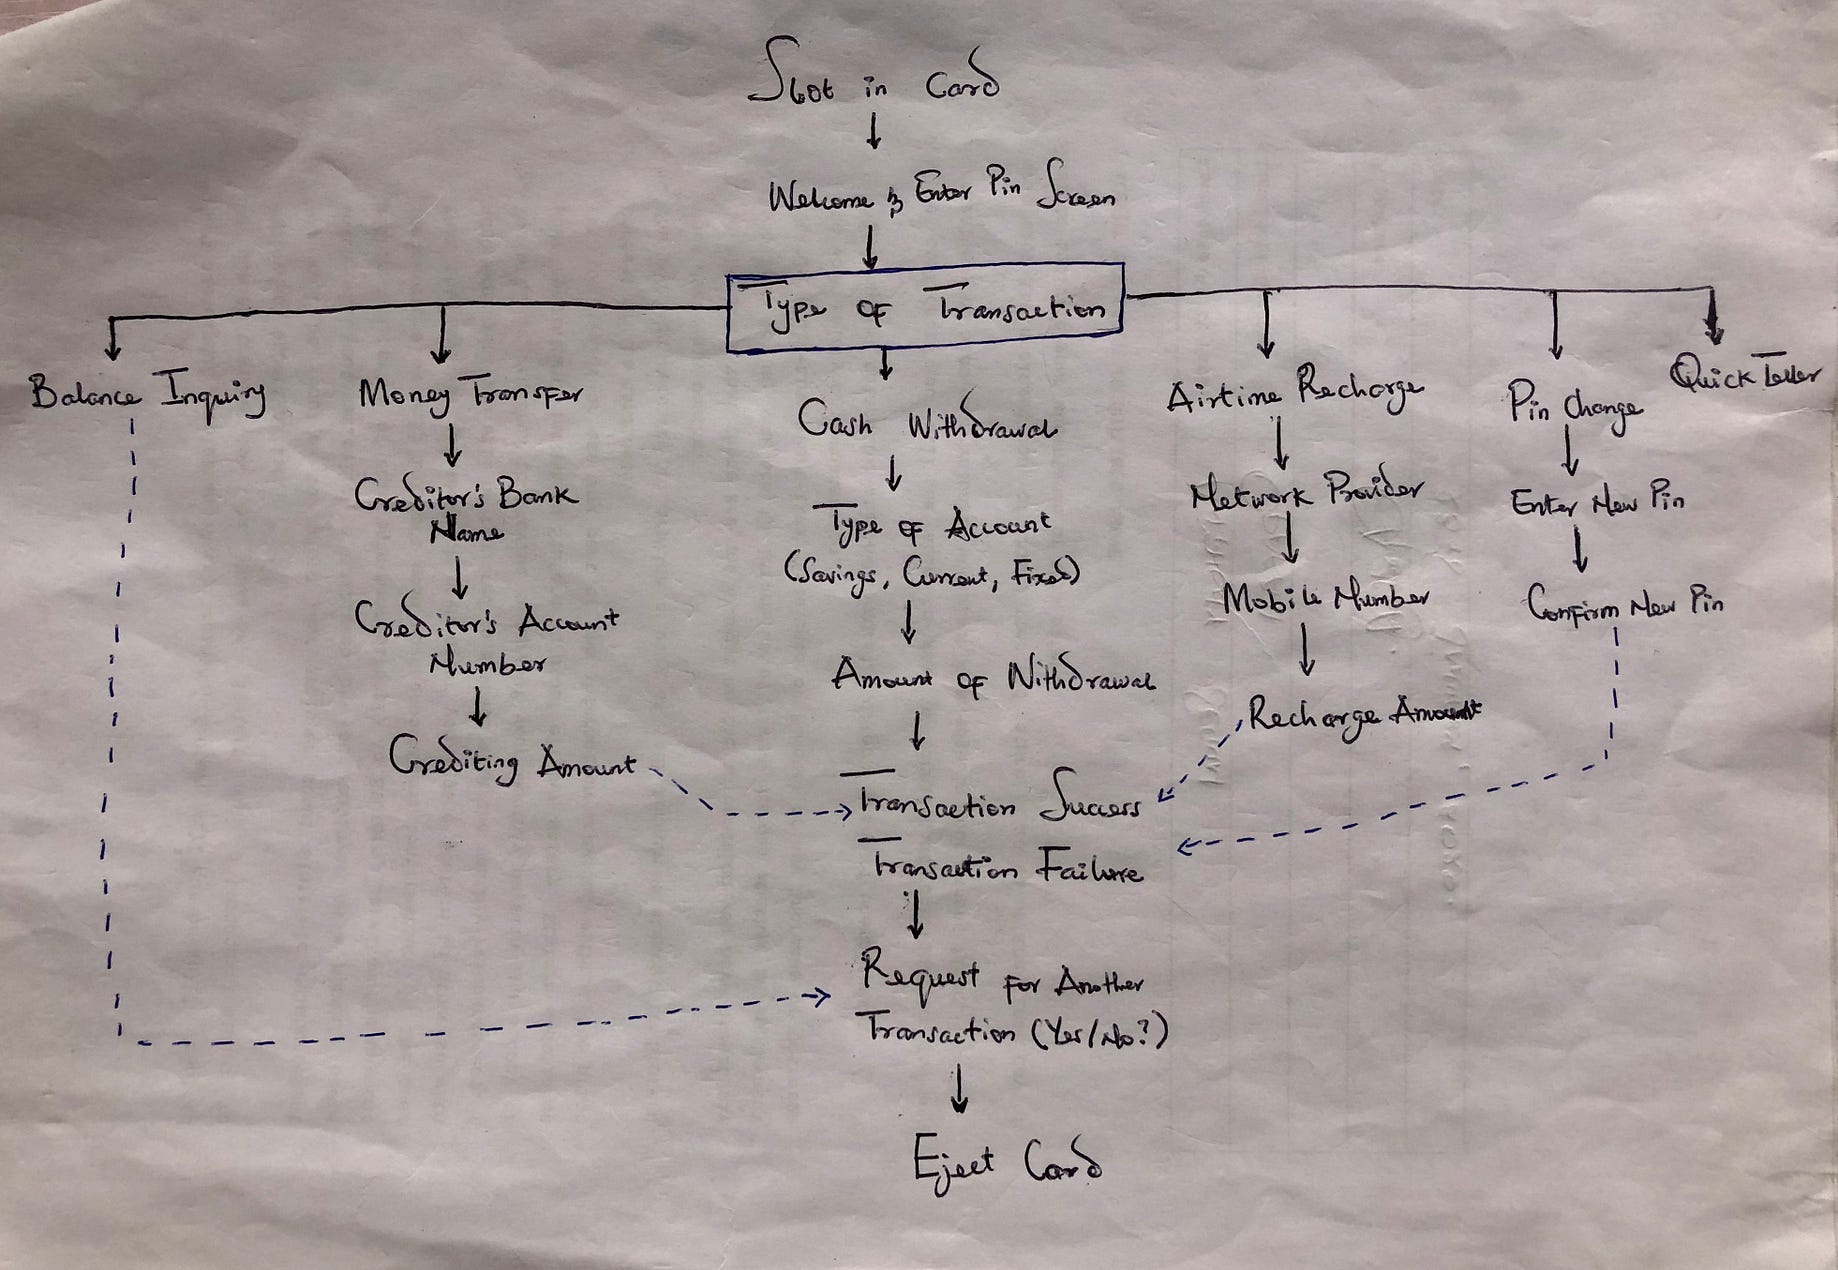 Slot in Card
Welcome & Enter Pin Screen
Type of Transaction
Balance Inquiry
Money Transfer
Creditor's Bank
Name
Creditor's Account
Number
Crediting Amount
Cash Withdrawal
Type of Account
(Savings, Current, Fixed)
Amount of Withdrawal
Airtime Recharge
Network Provider
Mobile Number
Recharge Amount
Pin Change
Enter New Pin
Confirm New Pin
Quick Teller
Transaction Success
Transaction Failure
Request for Another
Transaction (Yes/No?)
Eject Card